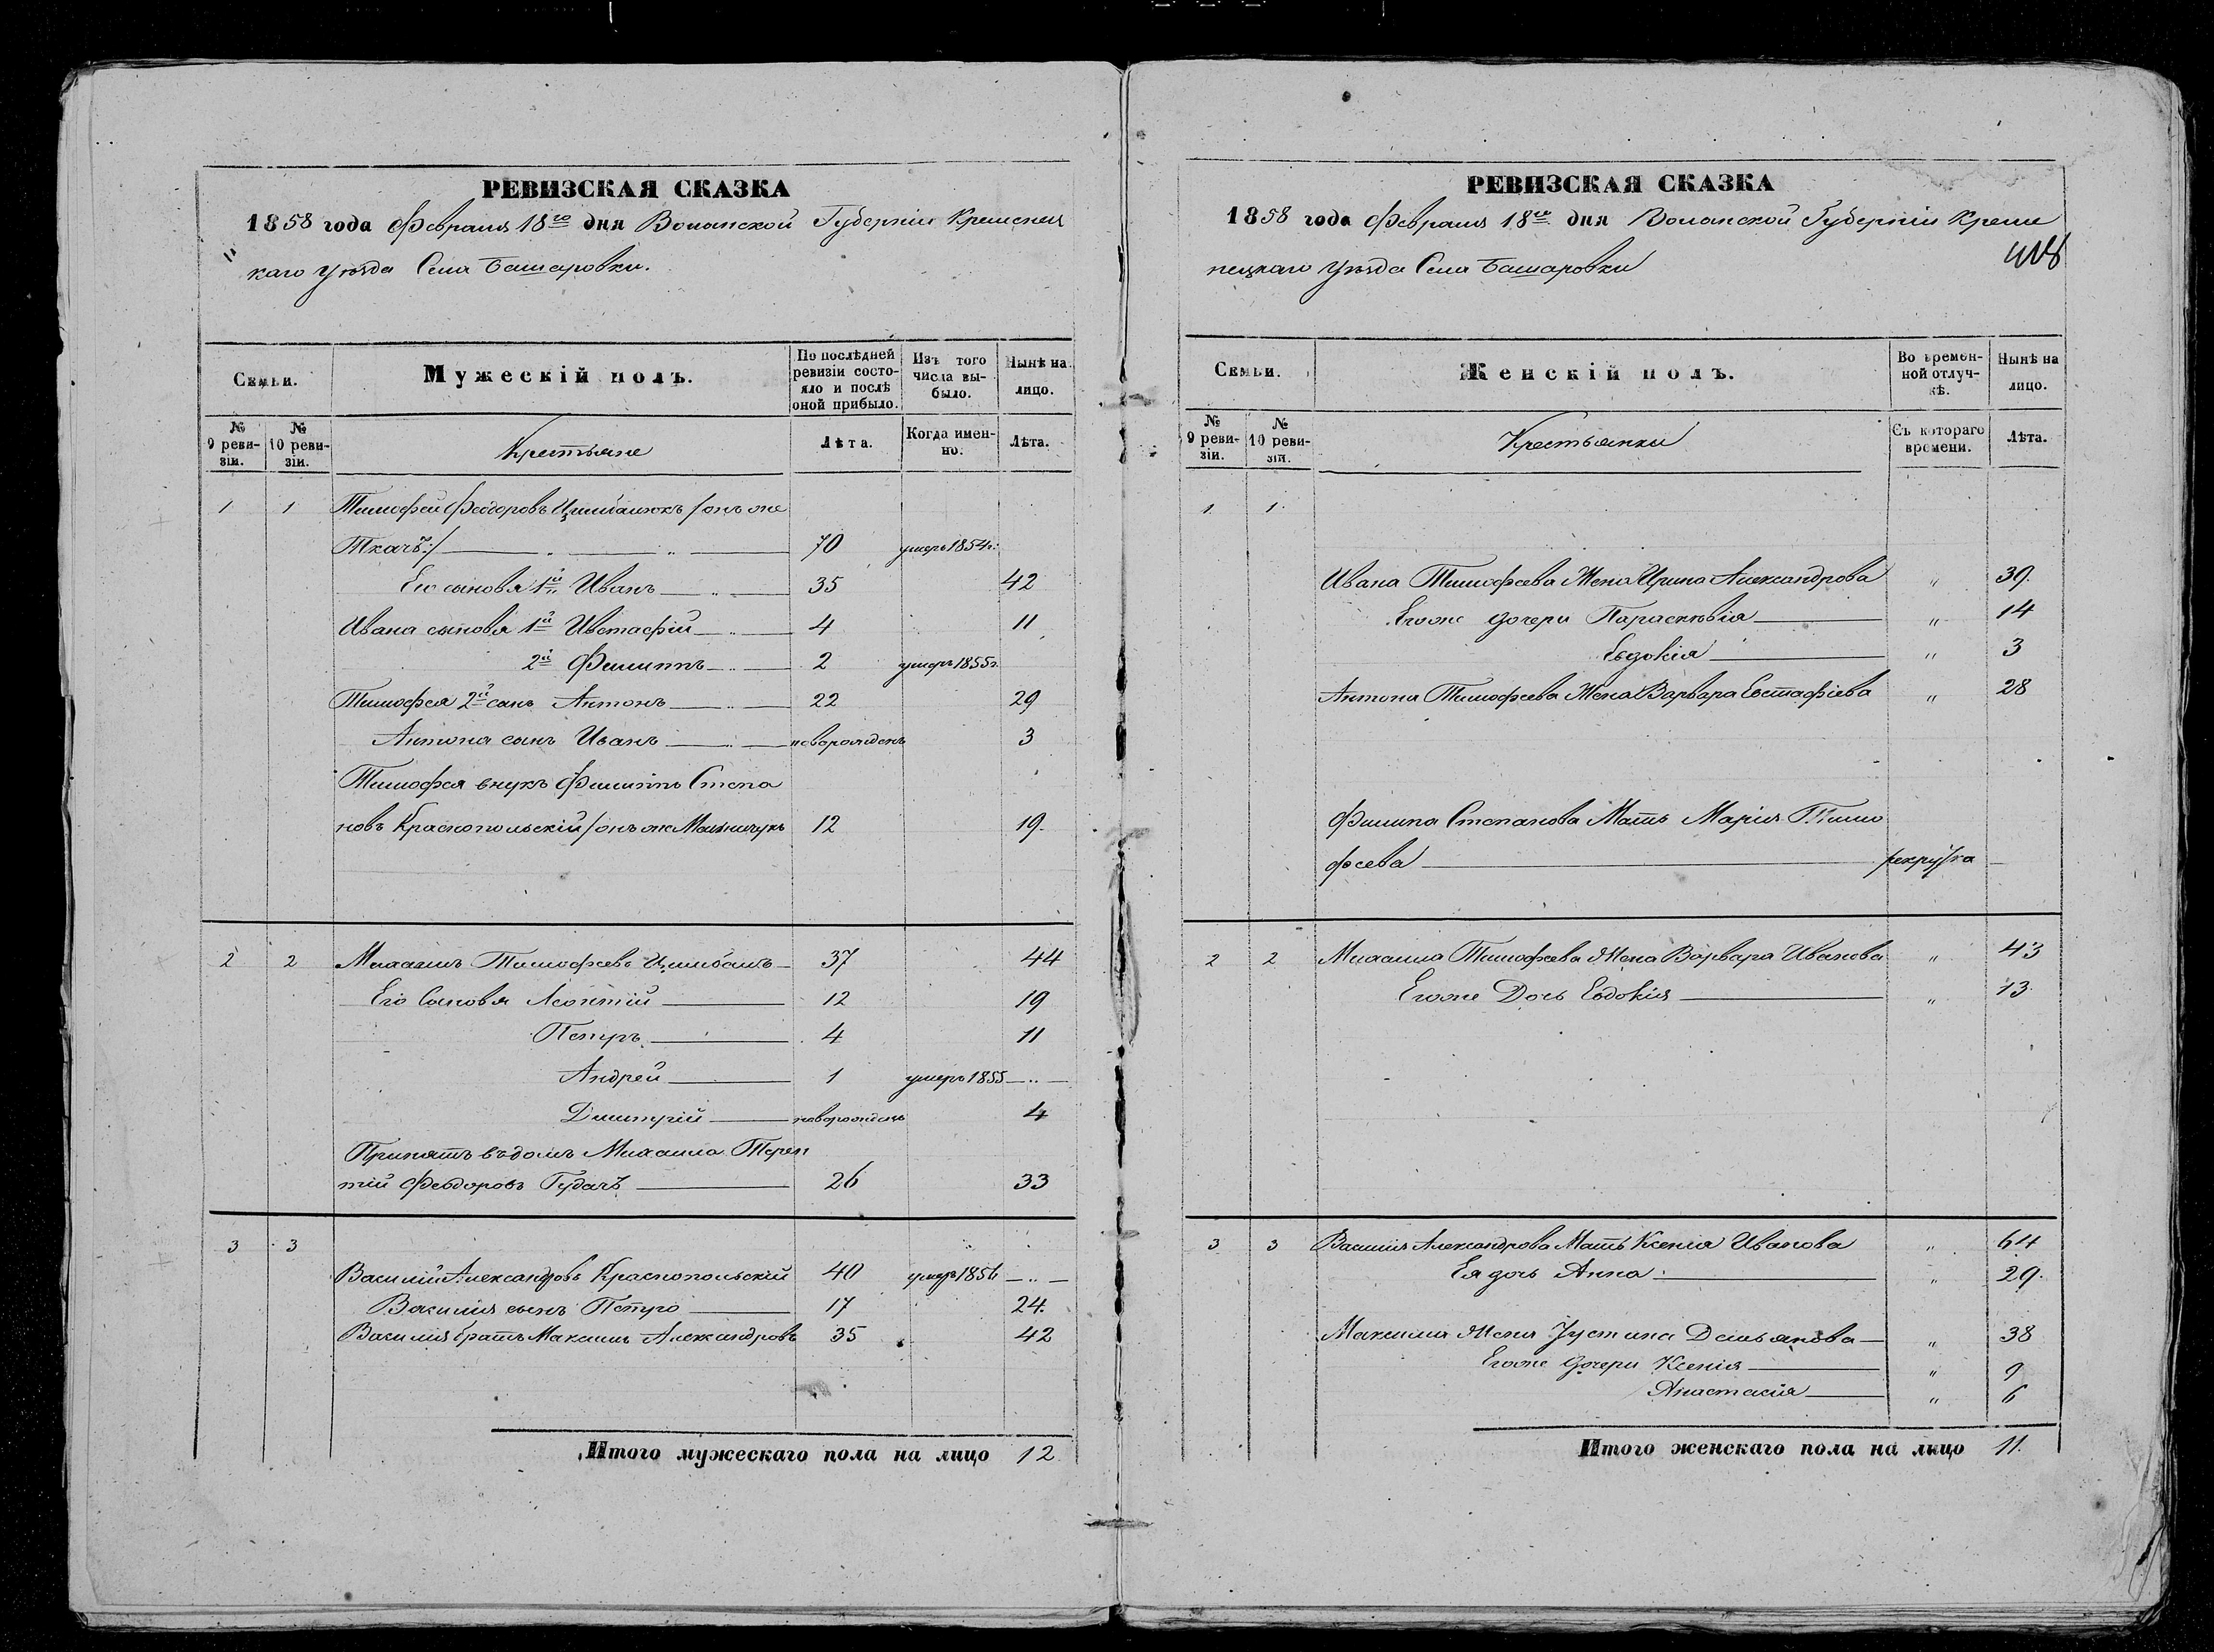 РЕВИЗСКАЯ СКАЗКА
1858 года Февраля 18го дня Волынской Губерніи Кременец
каго уѣзда Села Башаровки.
Семьи.
Мужескій полъ.
По послѣдней ревизіи состояло и послѣ оной прибыло.
Изъ того числа выбыло.
Нынѣ на лицо.
№ 9 ревизіи.
№ 10 ревизіи.
Крестьяне
Лѣта.
Когда именно.
Лѣта.
1 1 Тимофей Феодоровъ Цимбалюкъ /онъ же
Ткачъ:/ 70 умеръ 1854г:
Его сыновья 1й Иванъ 35 42
Ивана сыновья 1й Івстафій 4 11
2й Филиппъ 2 умеръ 1855г.
Тимофея 2й сынъ Антонъ 22 29
Антона сынъ Иванъ новорожденъ 3
Тимофея внукъ Филиппъ Степа
новъ Краснопольскій /онъ же Мельничукъ 12 19.
2 2 Михаилъ Тимофеевъ Цимбалъ 37 44
Его Сыновья Леонтій 12 19
Петръ 4 11
Андрей 1 умеръ 1855
Дмитрій новорожденъ 4
Принятъ въ домъ Михаила Терен
тій Феодоровъ Гудачъ 26 33
3 3
Василій Александровъ Краснопольскій 40 умеръ 1856
Василія сынъ Петро 17 24.
Василія братъ Максимъ Александровъ 35 42
Итого мужескаго пола на лицо 12
РЕВИЗСКАЯ СКАЗКА
1858 года Февраля 18го дня Волынской Губерніи Креме
нецкаго уѣзда Села Башаровки
Семьи.
Женскій полъ.
Во временной отлучкѣ.
Нынѣ на лицо.
№ 9 ревизіи.
№ 10 ревизіи.
Крестьянки
Съ котораго времени.
Лѣта.
1 1
Ивана Тимофеева Жена Ирина Александрова " 39.
Егоже дочери Параскѣвія " 14
Евдокія " 3
Антона Тимофеева Жена Варвара Евстафіева " 28
Филипа Степанова Мать Марія Тимо
феева рекрутка
2 2 Михаила Тимофеева Жена Варвара Иванова " 43
Егоже Дочь Евдокія " 13.
3 3 Василія Александрова Мать Ксенія Иванова " 64
Ея дочь Анна " 29.
Максима Жена Іустина Демьянова " 38
Егоже дочери Ксенія " 9
Анастасія " 6
Итого женскаго пола на лицо 11.